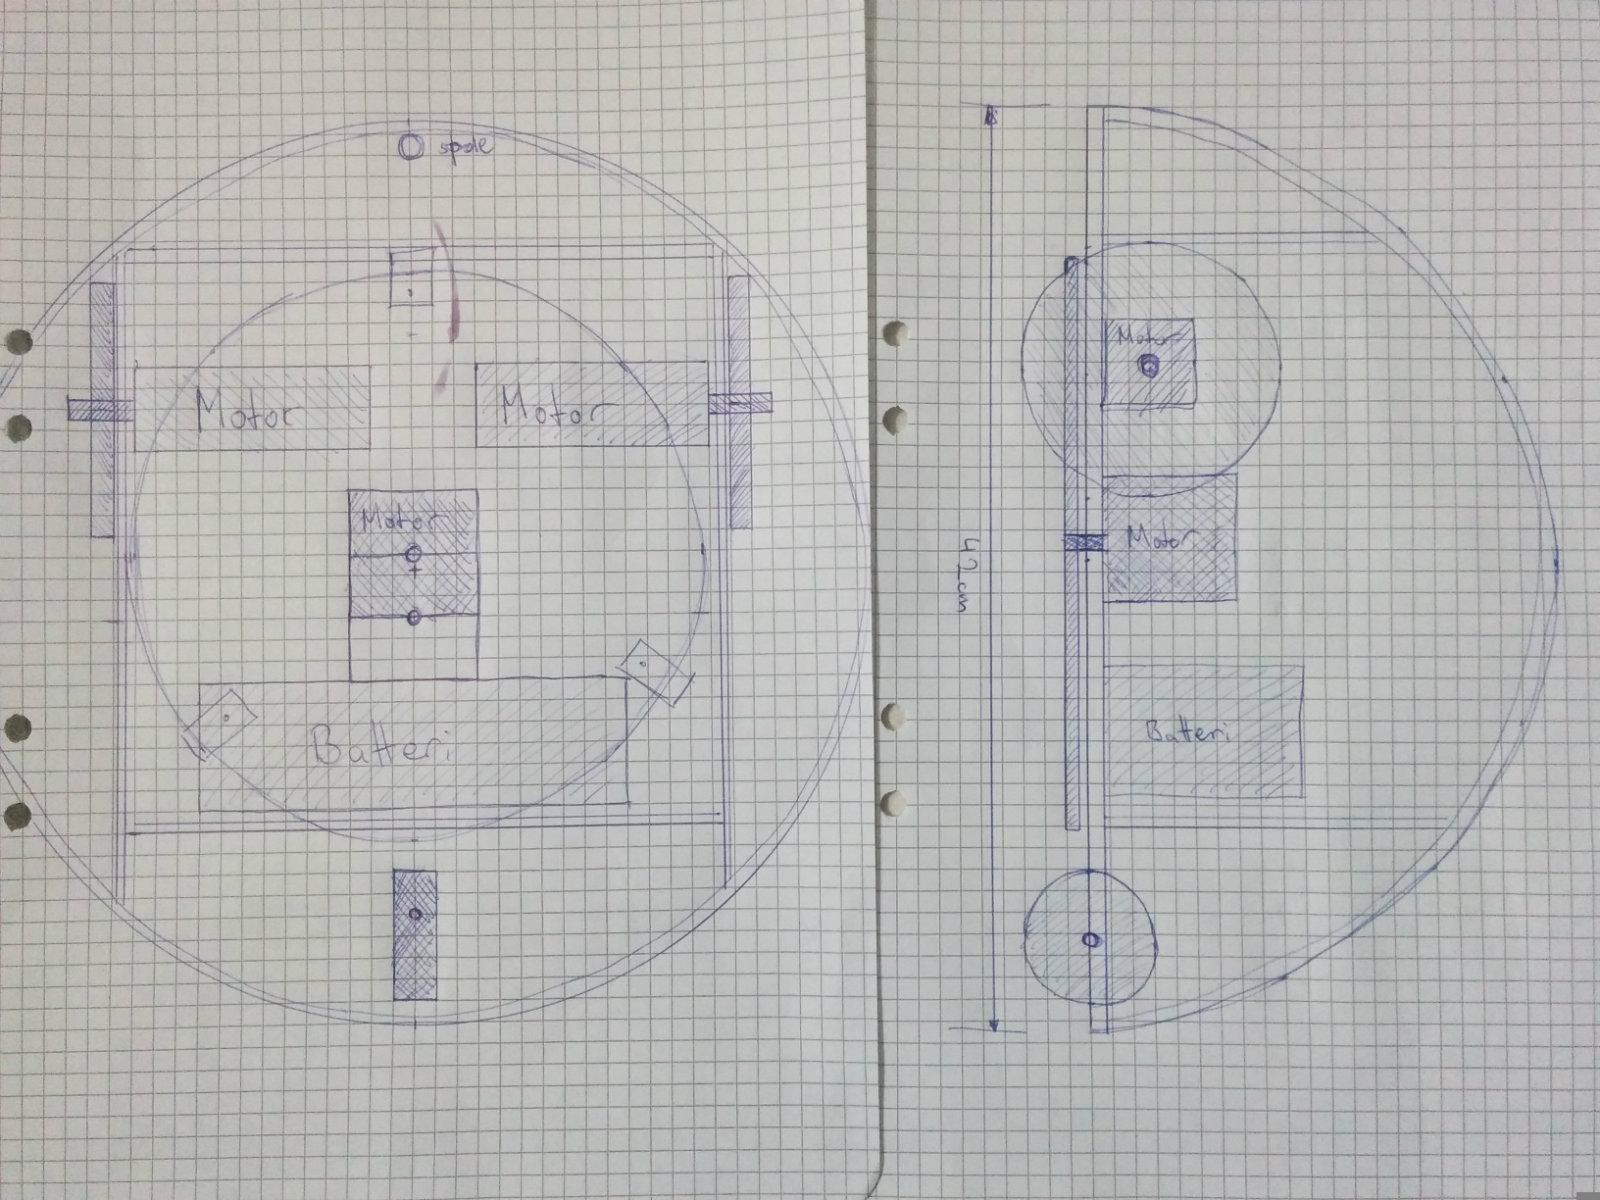 spole
Motor
Motor
Motor
Batteri
Motor
Motor
42cm
Batteri